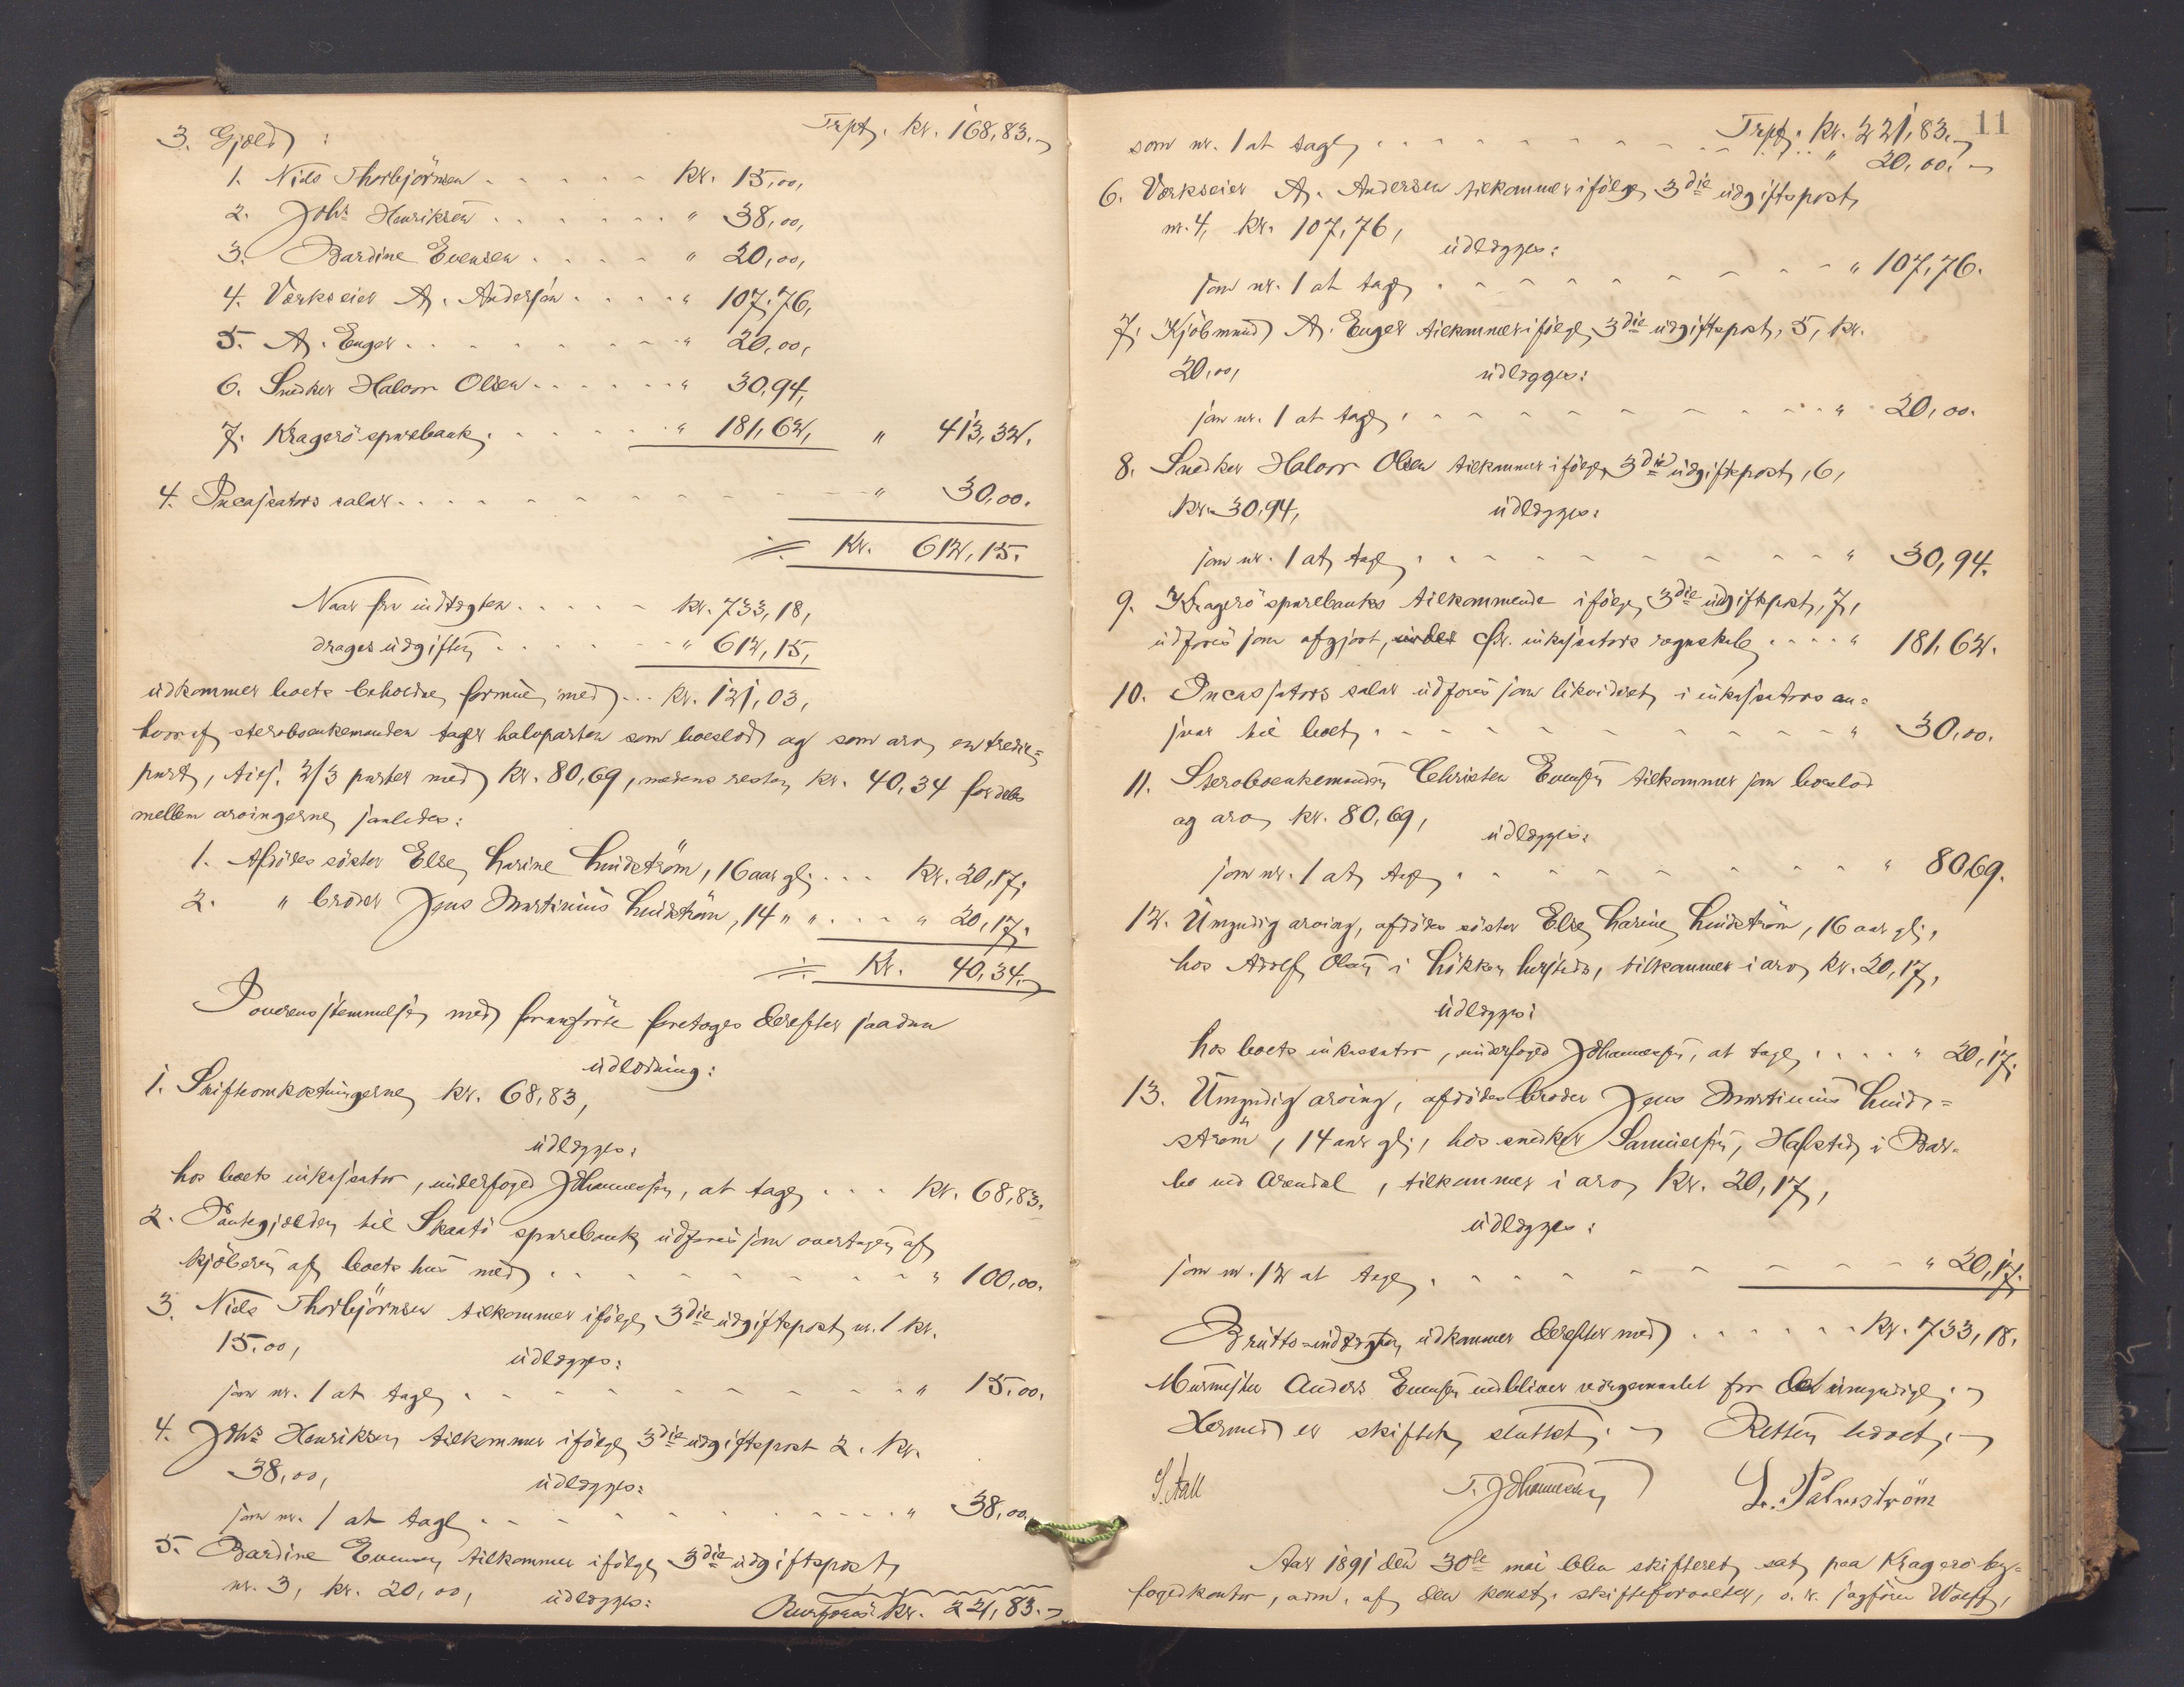 Trpt. kr. 168,83.
3. Gjæld:
1. Niels Thorbjörnsen . . . . . kr. 15,00,
2. Johs Henriksen . . . . . . " 38,00,
3. Bardine Evensen . . . . " 20,00,
4. Værkseier A. Andersen . . . . " 107,76,
5. A. Enger . . . . . . . . " 20,00,
6. Snedker Halvor Olsen . . . . . . " 30,94,
7. Kragerö sparebank . . . . . . " 181,62, " 413,32.
4. Incassators salær . . . . . . . . . . . . " 30,00.
÷ Kr. 612,15.
Naar fra indtægten . . . . . kr. 733,18,
drages udgiften . . . . . " 612,15,
udkommer boets beholdne formue med . . . kr. 121,03,
hvoraf sterboenkemanden tager halvparten som boeslod og som arv en tredie-
part, tils. 2/3 parter med kr. 80,69, medens resten kr. 40,34 fordeles
mellem arvingerne saaledes:
1. Afdödes söster Else Karine Lindström, 16 aar gl. . . . Kr. 20,17.
2. " broder Jens Martinius Lindström, 14 " " . . . " 20,17.
÷ Kr. 40,34.
I overensstemmelse med foranförte foretages derefter saadan
udlodning:
1. Skifteomkostningerne kr. 68,83,
udlægges:
hos boets inkassator, underfoged Johannesen, at tage . . . Kr. 68,83.
2. Pantegjælden til Skaatö sparebank udföres som overtagen af
kjöberen af boets hus med . . . . . . . . . . " 100,00.
3. Niels Thorbjörnsen tilkommer ifölge 3die udgiftspost nr. 1 kr.
15,00, udlægges:
som nr. 1 at tage . . . . . . . . . . . " 15,00.
4. Johs Henriksen tilkommer ifölge 3die udgiftspost 2. kr.
38,00, udlægges:
som nr. 1 at tage . . . . . . . . . . . " 38,00.
5. Bardine Evensen tilkommer ifölge 3die udgiftspost,
nr. 3, kr. 20,00, udlægges:
Overföres: kr. 221,83.
11
Trpt. kr. 221,83.
som nr. 1 at tage . . . . . . . . . . . " 20,00.
6. Værkseier A. Andersen tilkommer ifölge 3die udgiftspost,
nr. 4, kr. 107,76, udlægges:
som nr. 1 at tage . . . . . . . . . . " 107,76.
7. Kjöbmand A. Enger tilkommer ifölge 3die udgiftspost, 5, kr.
20,00, udlægges:
som nr. 1 at tage . . . . . . . . . . . " 20,00.
8. Snedker Halvor Olsen tilkommer ifölge 3die udgiftspost, 6,
kr. 30,94, udlægges:
som nr. 1 at tage . . . . . . . . . . . " 30,94.
9. Kragerö sparebanks tilkommende ifölge 3die udgiftspost, 7,
udföres som afgjort, under cfr. inkassators regnskab . . . . " 181,62.
10. Incassators salær udföres som likvideret i inkassators an-
svar til boet . . . . . . . . . . . . . " 30,00.
11. Sterboenkemanden Christen Evensen tilkommer som boeslod
og arv kr. 80,69, udlægges:
som nr. 1 at tage . . . . . . . . . . . " 80,69.
12. Umyndig arving, afdödes söster Else Karine Lindström, 16 aar gl.,
hos Adolf Olsen i Lökken hersteds, tilkommer i arv kr. 20,17,
udlægges:
hos boets inkassator, underfoged Johannesen, at tage . . . . " 20,17.
13. Umyndig arving, afdödes broder Jens Martinius Lind-
ström, 14 aar gl., hos snedker Samuelsen, Hafsted i Bar-
bo ved Arendal, tilkommer i arv kr. 20,17,
udlægges:
som nr. 12 at tage . . . . . . . . . . " 20,17.
Brutto-indtægten udkommer derefter med . . . . . . kr. 733,18.
Murmester Anders Evensen indbliver værgemaalet for det umyndige.
Hermed er skiftet sluttet. Retten hævet.
S. Aall T. Johannesen L. Palmström
Aar 1891 den 30te mai blev skifteret sat paa Kragerö by-
fogedkontor, adm. af den konst. skifteforvalter, o. r. sagförer Wolff,